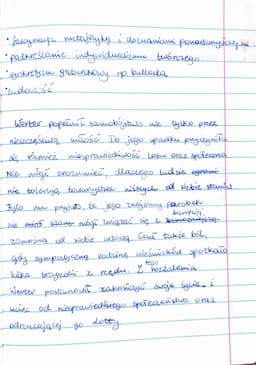 • fascynacja metafizyką i doznaniami ponadzmysłowymi
• podkreślanie indywidualizmu twórczego
• synkretyzm gatunkowy np. ballada
• ludowość
Werter popełnił samobójstwo nie tylko przez
nieszczęśliwą miłość. Do jego upadku przyczyniła
się również niesprawiedliwość losu oraz społeczna
Nie mógł zrozumieć, dlaczego ludzie
nie tolerują towarzystwa niższych od siebie stanów
Było mu przykro, że jego znajomy parobek
nie mógł związać się z bardziej
zamożną od siebie wdową. Czuł także ból,
gdy sympatyczną rodzinę wieśniaków spotkało
kilka tragedii z rzędu. Z tego rozżalenia
Werter postanowił zakończyć swoje życie i
uciec od niesprawiedliwego społeczeństwa oraz
odrzucającej go Lotty